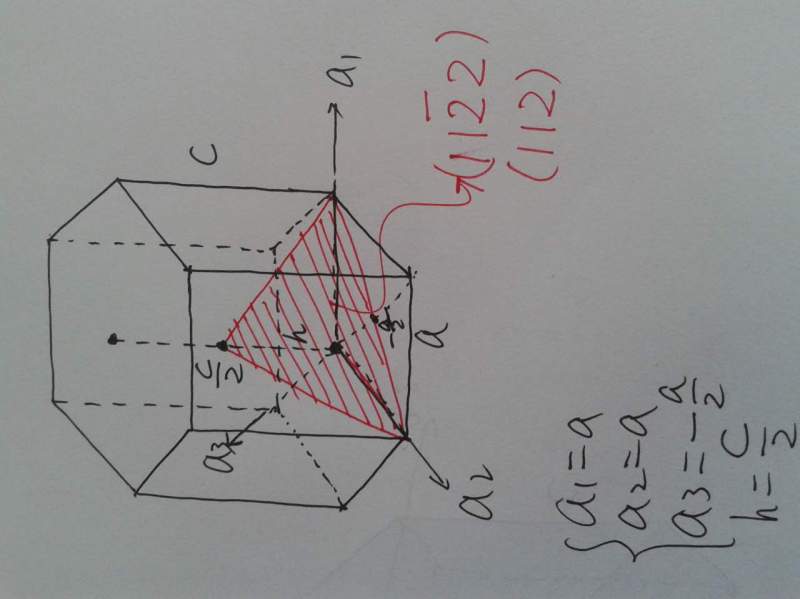 c
a₁
(112̄2)
(112)
c/2
h
a/2
a
a₃
a₂
a₁=a
a₂=a
a₃=-a/2
h=c/2